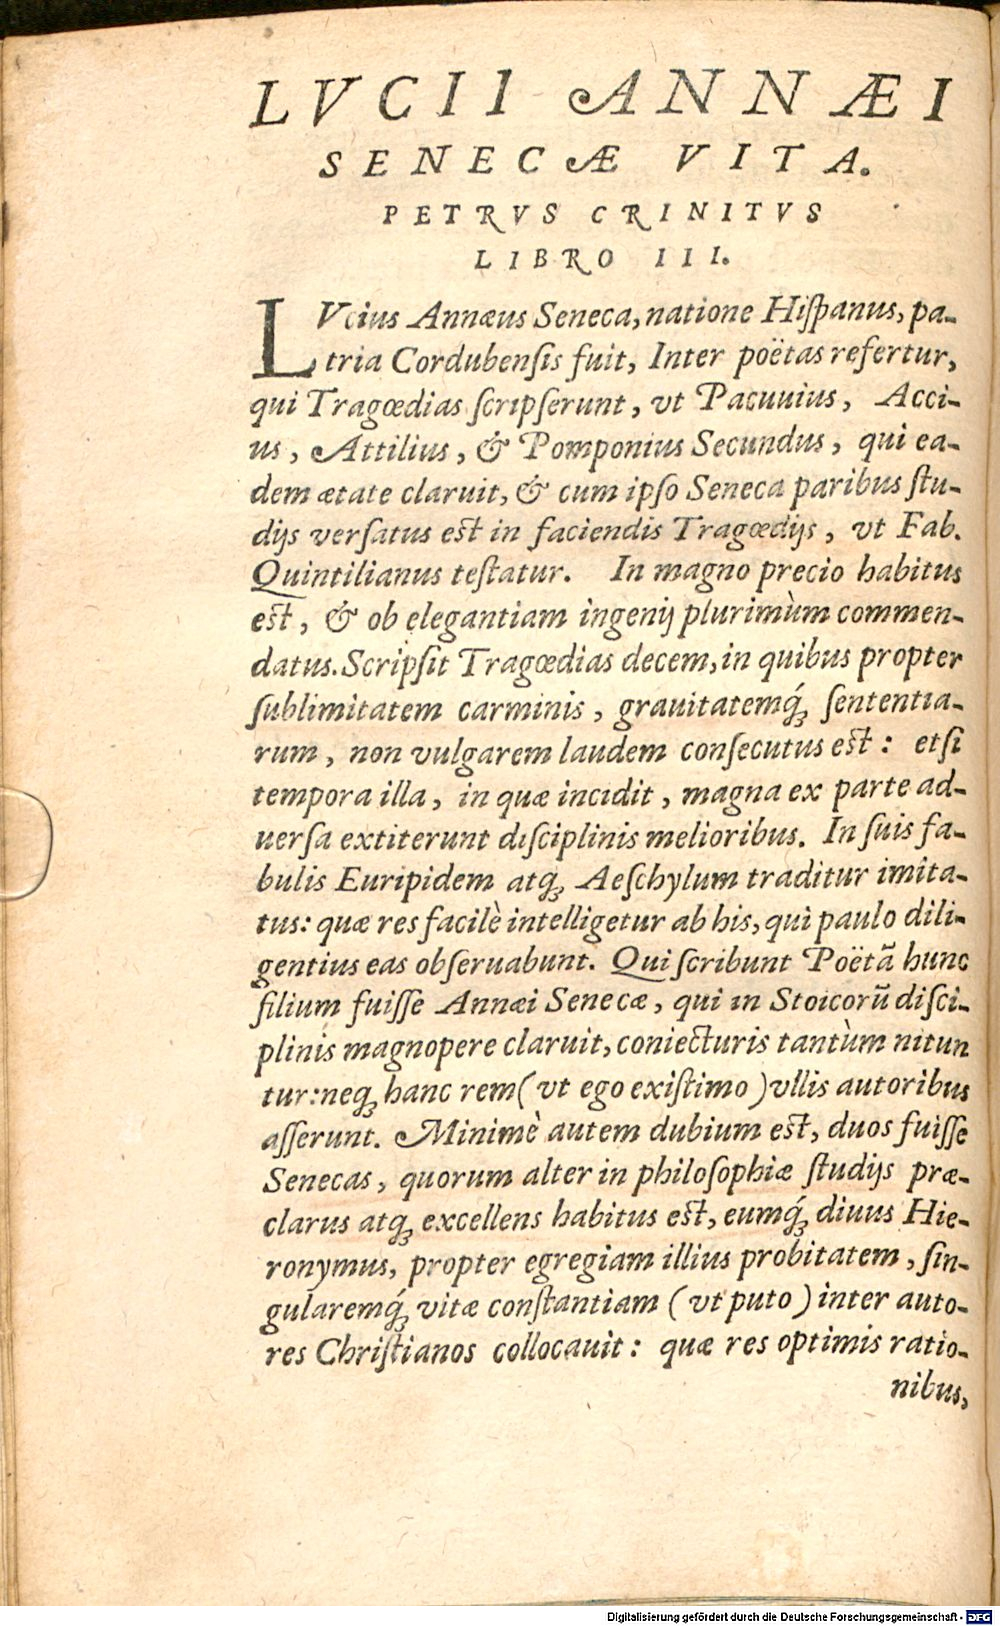 LVCII ANNÆI
SENECÆ VITA.
PETRVS CRINITVS
LIBRO III.
LVcius Annæus Seneca, natione Hiſpanus, pa-
tria Cordubenſis fuit, Inter poëtas refertur,
qui Tragœdias ſcripſerunt, vt Pacuuius, Acci-
us, Attilius, & Pomponius Secundus, qui ea-
dem ætate claruit, & cum ipſo Seneca paribus ſtu-
dijs verſatus eſt in faciendis Tragœdijs, vt Fab.
Quintilianus teſtatur. In magno precio habitus
eſt, & ob elegantiam ingenij plurimùm commen-
datus. Scripſit Tragœdias decem, in quibus propter
ſublimitatem carminis, grauitatemq́; ſententia-
rum, non vulgarem laudem conſecutus eſt: etſi
tempora illa, in quæ incidit, magna ex parte ad-
uerſa extiterunt diſciplinis melioribus. In ſuis fa-
bulis Euripidem atq; Aeſchylum traditur imita-
tus: quæ res facilè intelligetur ab his, qui paulo dili-
gentius eas obſeruabunt. Qui ſcribunt Poëtã hunc
filium fuiſſe Annæi Senecæ, qui in Stoicorũ diſci-
plinis magnopere claruit, coniecturis tantùm nitun
tur: neq; hanc rem (vt ego exiſtimo) vllis autoribus
aſſerunt. Minimè autem dubium eſt, duos fuiſſe
Senecas, quorum alter in philoſophiæ ſtudijs præ-
clarus atq; excellens habitus eſt, eumq́; diuus Hie-
ronymus, propter egregiam illius probitatem, ſin-
gularemq́; vitæ conſtantiam (vt puto) inter auto-
res Chriſtianos collocauit: quæ res optimis ratio-
nibus,
Digitalisierung gefördert durch die Deutsche Forschungsgemeinschaft - DFG